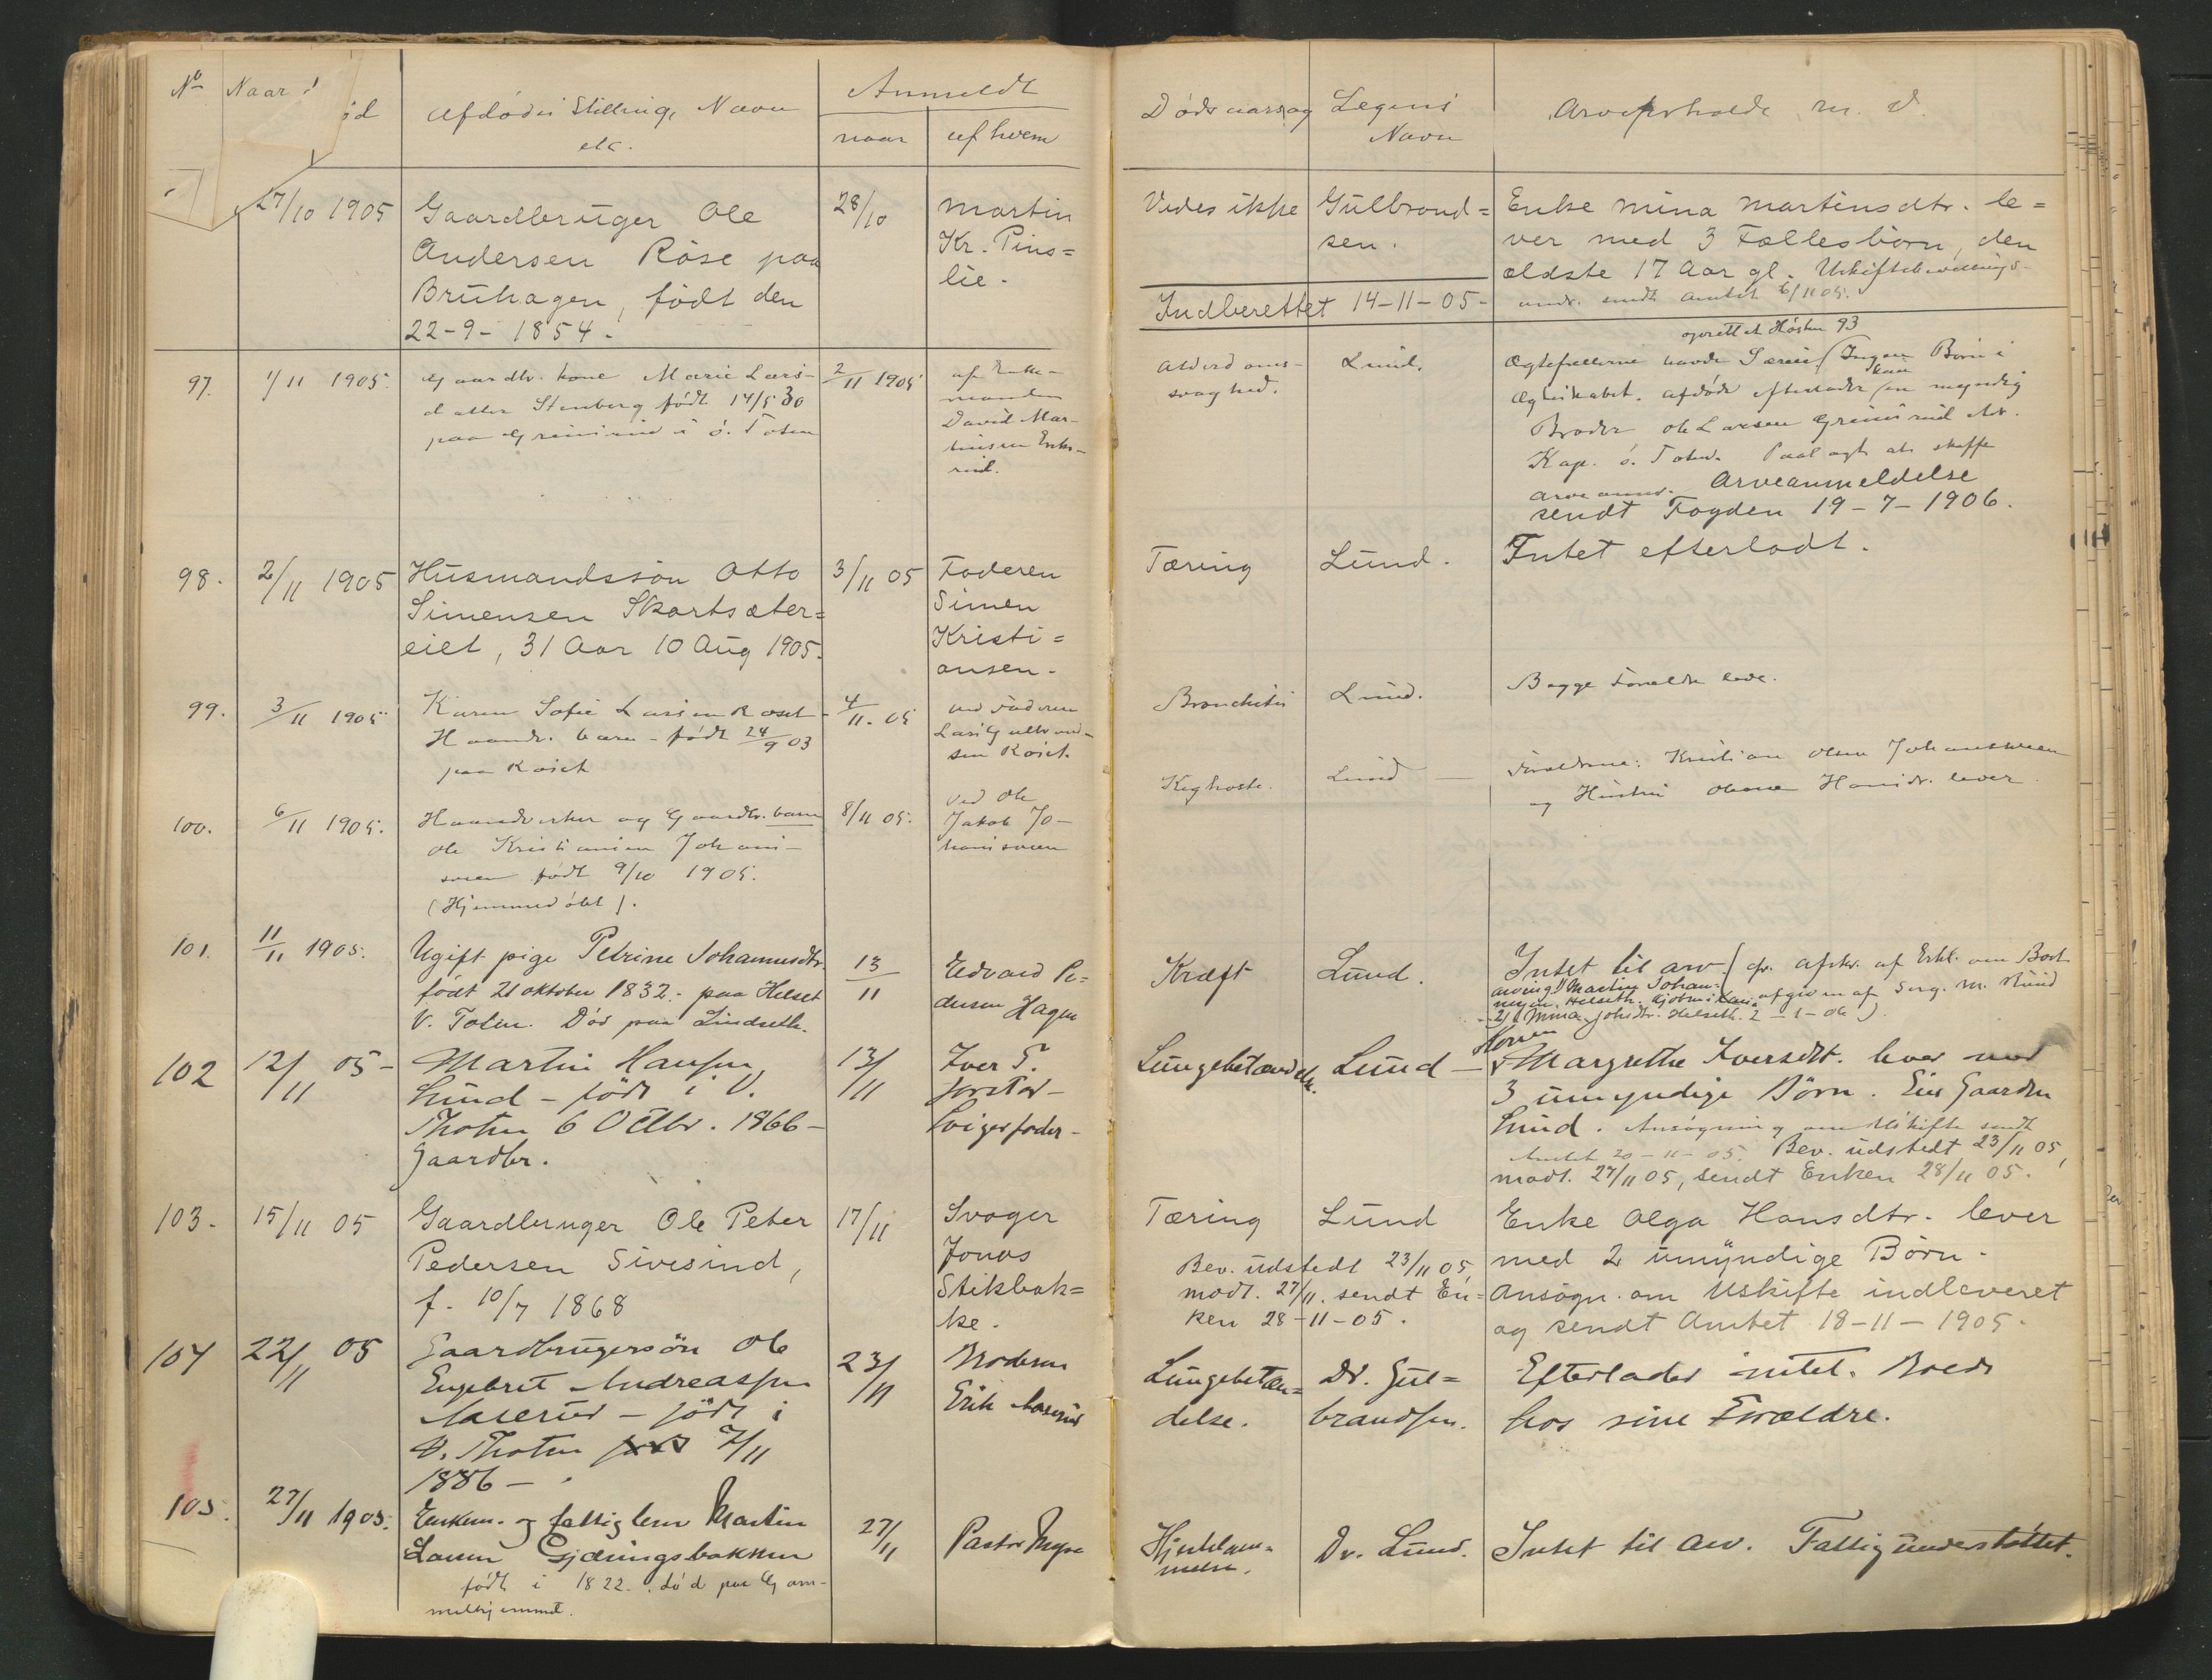 No Naar d
ød
Afdødes Stilling, Navn
etc.
Anmeldt
naar
af hvem
Dødsaarsag
Legens
Navn
Arveforholde m. V.
27/10 1905
Gaardbruger Ole
Andersen Röse paa
Bruhagen, födt den
22-9-1854.
28/10
Martin
Kr. Pins=
lie.
Vides ikke
Gulbrand=
sen.
Enke Mina Martinsdtr. le=
ver med 3 Fællesbörn, den
ældste 17 Aar gl.
Indberettet 14-11-05-
sendt Amtet 6/11 05.
97.
1/11 1905.
Gaardbr. kone Marie Lars-
datter Stenberg födt 14/5 30
paa Grimsrud i ö. Toten
2/11 1905
af Enke-
manden
David Mar-
tinsen
Alderdoms-
svaghed.
Lund.
oprettet Hösten 93
Ægtefællerne havde (Ingen Börn i
Ægteskabet. Afdøde efterlader kun en myndig
Broder Ole Larsen Grimsrud
Kap. ö. Toten. Paalagt at skaffe
Arveanmeldelse
sendt Fogden 19-7-1906.
98.
2/11 1905
Husmandssön Otto
Simensen Skartsæter=
eiet, 31 Aar 10 Aug 1905.
3/11 05
Faderen
Simen
Kristi=
ansen.
Tæring
Lund.
Intet efterladt.
99.
3/11 1905
Karen Sofie Larsen Röset
Haandv. barn - födt 24/9 03
paa Röset
4/11. 05
ved Faderen
Lars Gulbrand-
sen Röset.
Bronchitis
Lund.
Begge Foreldre leve.
100.
6/11 1905.
Haandverker og Gaardbr. barn
Ole Kristiansen Johans-
sveen födt 9/10 1905.
(Hjemmedöbt).
8/11 05.
ved Ole
Jakob Jo-
hanssveen
Kighoste.
Lund
Foreldrene: Kristian Olsen Johanssveen
og Hustru Hansdr. lever.
101.
11/11 1905.
Ugift pige Petrine Johannesdtr
födt 21 oktober 1832. - paa Helset
V. Toten. Död paa Lindseth.
13/11
Edvard Pe-
dersen Hagen
Kræft
Lund.
Intet til arv (cfr. afskr. af Erkl. om Bort
arving: 1) Martin Johan-
afgiven af
2) Mina Johsdtr. Helseth. 2-1-06).
102
12/11 05-
Martin Hansen
Lund - födt i V.
Thoten 6 Octbr. 1866-
Gaardbr.
13/11
Iver T.
Svigerfader-
Lungebetændelse.
Lund
Konen
Margrethe Iversdtr. lever med
3 umyndige Börn. Eier Gaarden
Lund. Ansögning om Uskifte sendt
Amtet 20-11-05. Bev. udstedt 23/11 05,
modt. 27/11 05, sendt Enken 28/11 05.
103.
15/11 05
Gaardbruger Ole Peter
Pedersen Sivesind,
f. 10/7 1868
17/11
Svoger
Jonas
Stikbak=
ke.
Tæring
Lund
Bev. udstedt 23/11 05,
modt. 27/11. sendt En=
ken 28-11-05.
Enke Olga Hansdtr. lever
med 2 umyndige Börn.
Ansögn. om Uskifte indleveret
og sendt Amtet 18-11-1905.
104
22/11 05
Gaardbrugersön Ole
Engebret Andreassen
Aaserud - födt i
V. Thoten 7/11
1886-
23/11
Broderen
Erik Aaserud
Lungebetæn=
delse.
Dr. Gul=
brandsen.
Efterlader intet. Boede
hos sine Forældre.
105.
27/11 1905.
Enkem. og fattiglem Martin
Larsen Gjæringsbakken
födt i 1822. död paa Gam-
melhjemmet.
27/11
Pastor
Hjertelam-
melse.
Dr. Lund.
Intet til arv. Fattigunderstöttet.